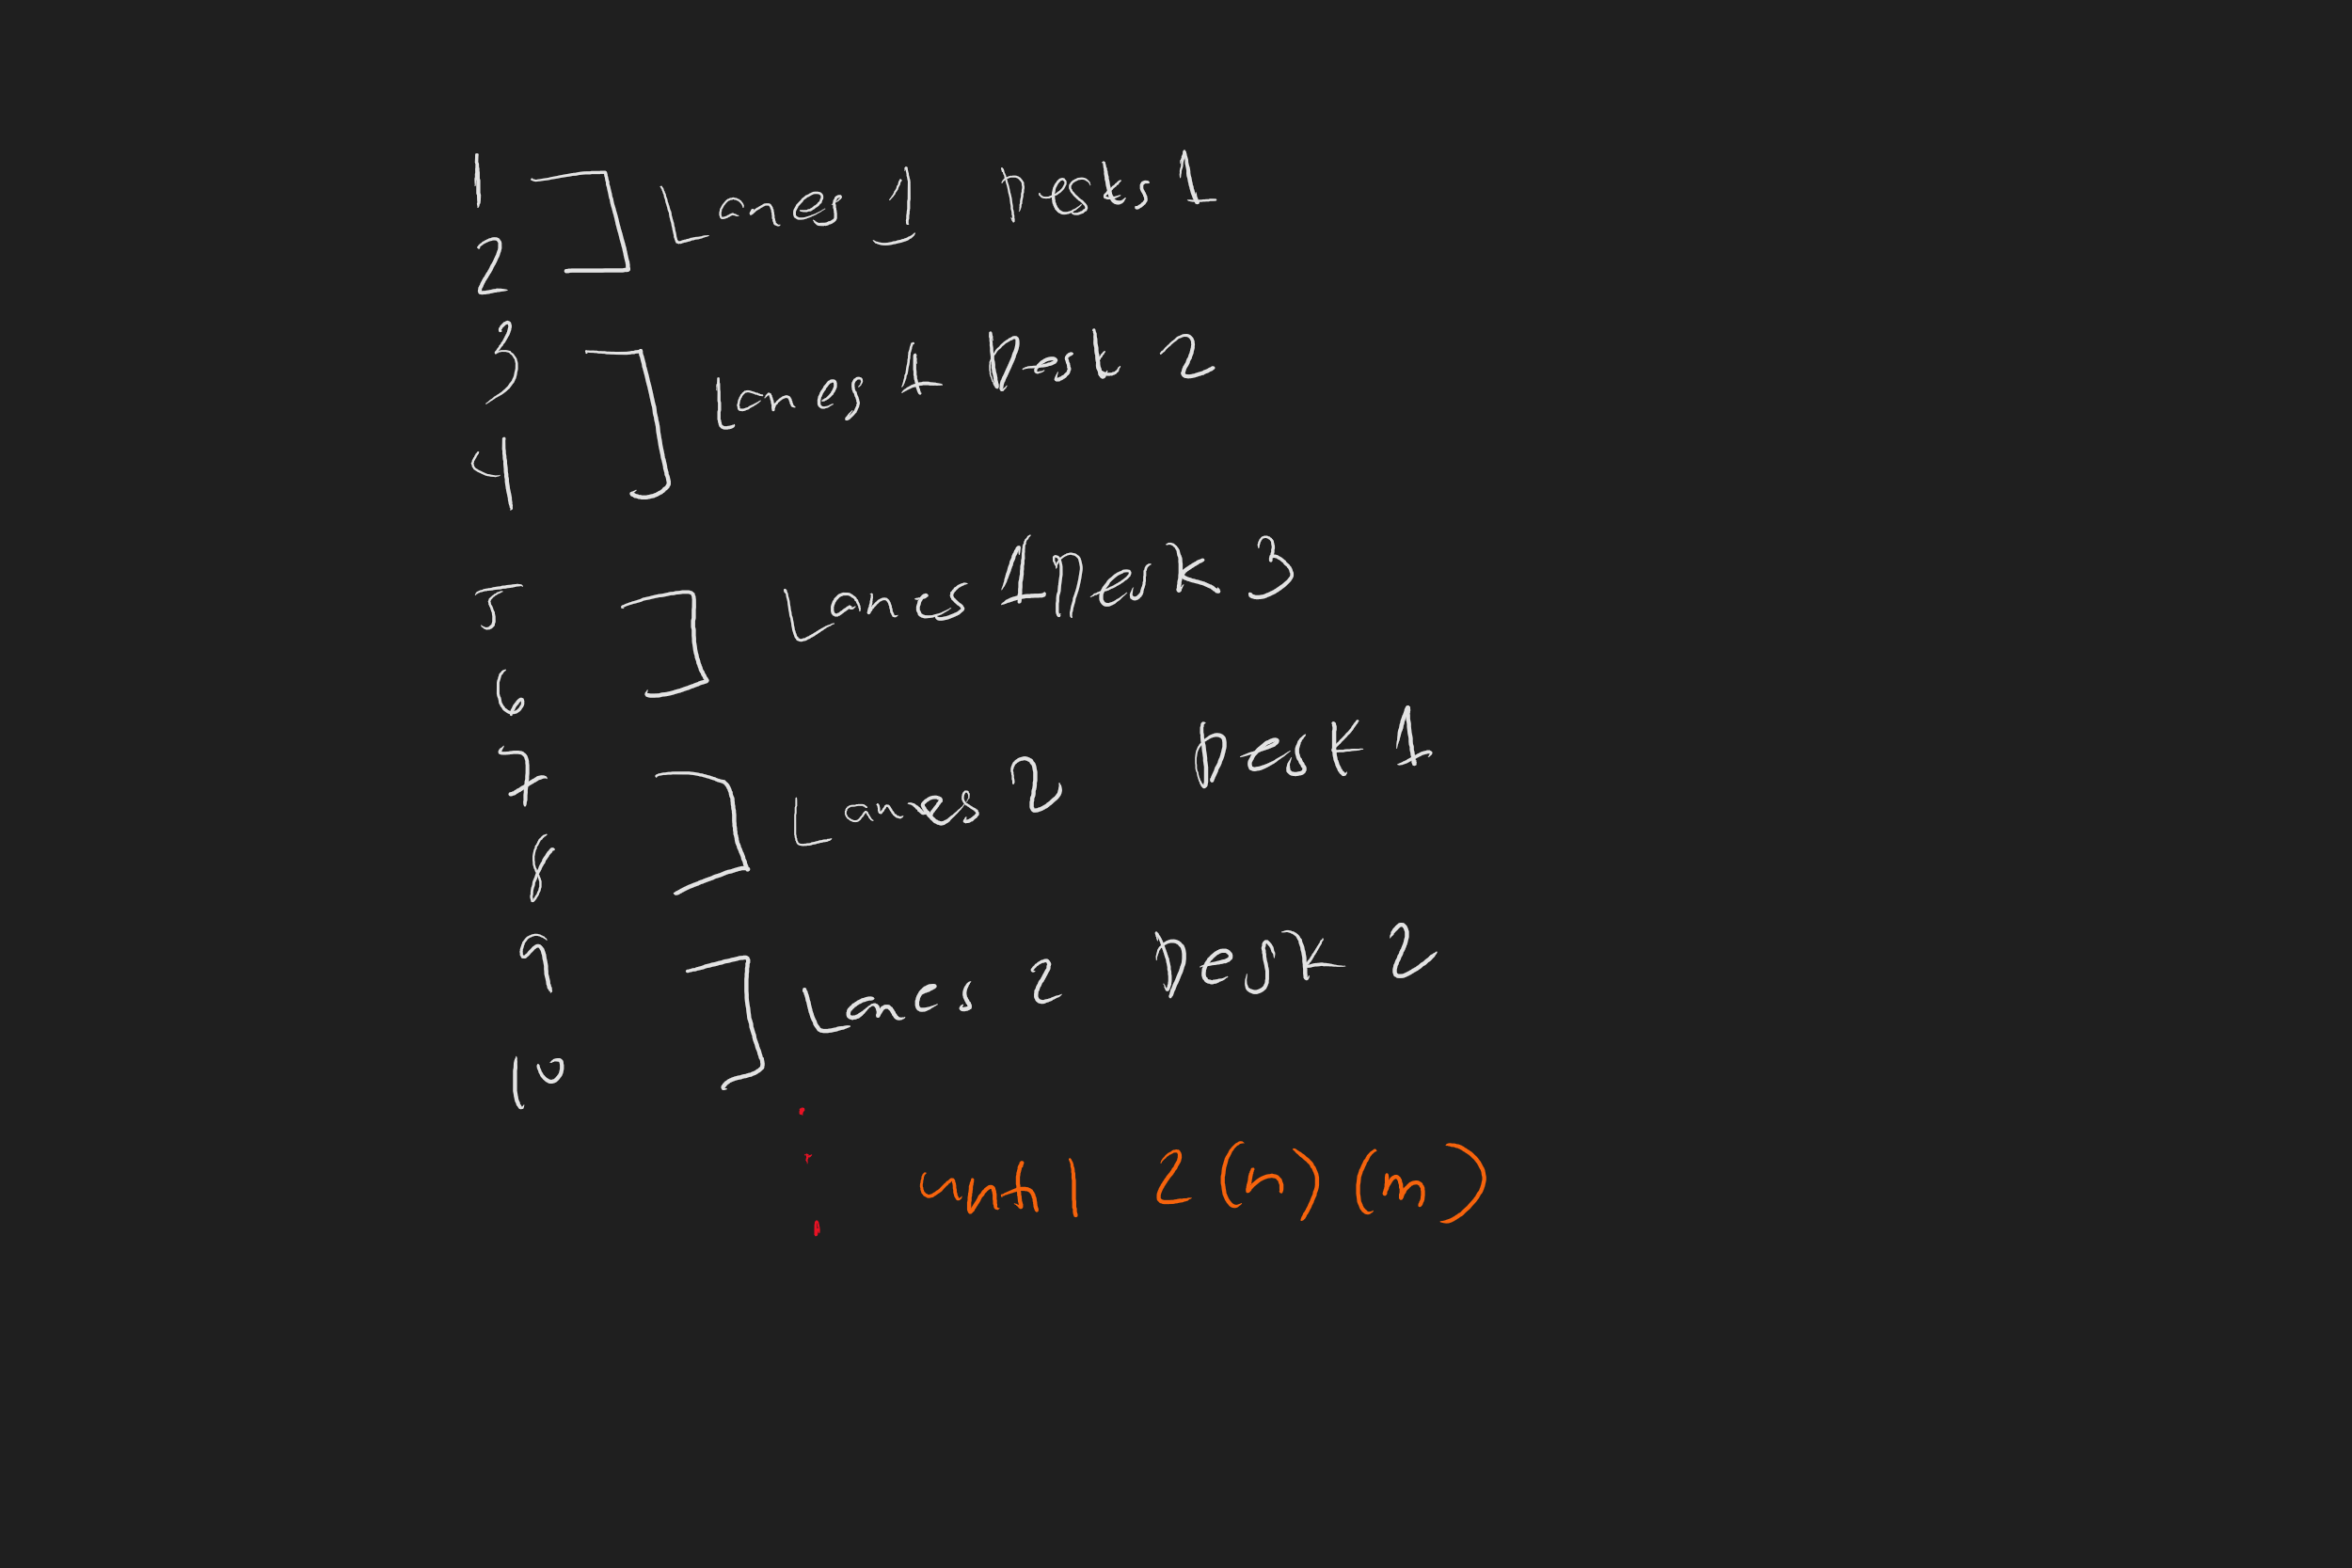 1
2
Lanes 1 Desks 1
3
4
Lanes 1 Desk 2
5
6
Lanes 1 Desk 3
7
8
Lanes 2 Desk 1
9
10
Lanes 2 Desk 2
until 2(n)(m)